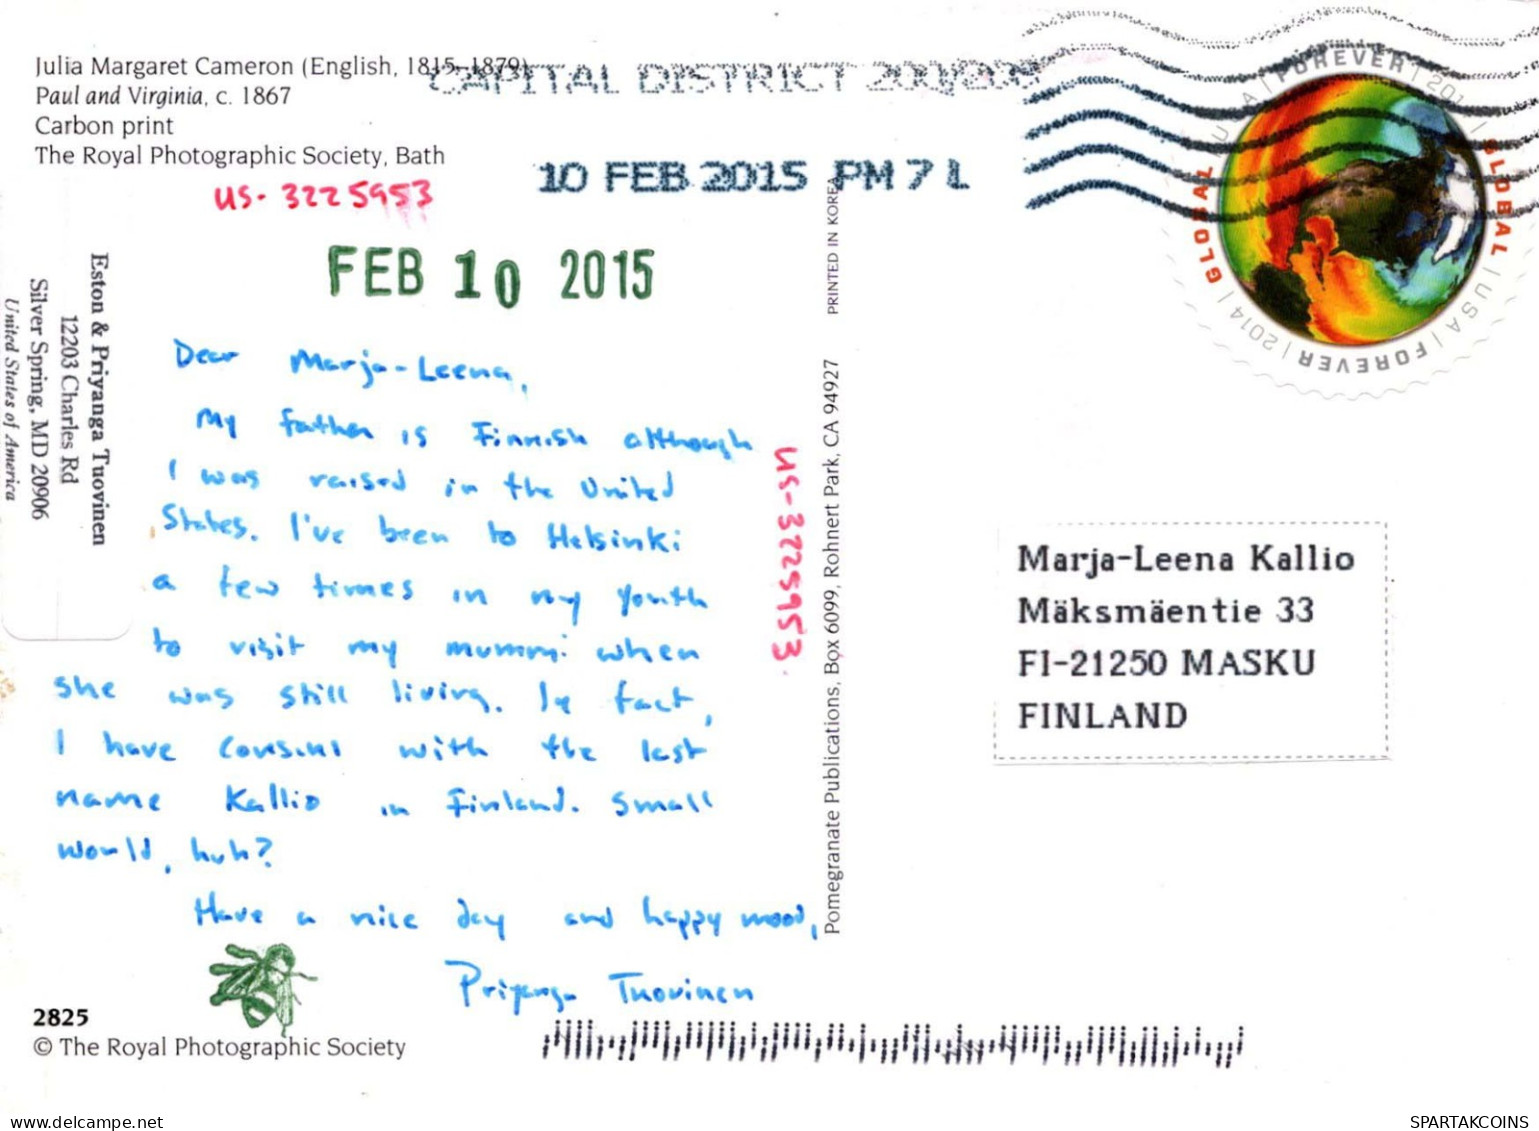 Julia Margaret Cameron (English, 1815–1879)
Paul and Virginia, c. 1867
Carbon print
The Royal Photographic Society, Bath
CAPITAL DISTRICT 200/205
10 FEB 2015 PM 7 L
US-3225953
FEB 10 2015
Eston & Priyanga Tuovinen
12203 Charles Rd
Silver Spring, MD 20906
United States of America
Dear Marja-Leena,
My father is Finnish although
I was raised in the United
States. I've been to Helsinki
a few times in my youth
to visit my mummi when
she was still living. In fact,
I have cousins with the last
name Kallio in Finland. Small
world, huh?
Have a nice day and happy mood,
Priyanga Tuovinen
US-3225953.
Pomegranate Publications, Box 6099, Rohnert Park, CA 94927
PRINTED IN KOREA
GLOBAL | USA | FOREVER | 201 | GLOBAL | USA | FOREVER | 2014 |
Marja-Leena Kallio
Mäksmäentie 33
FI-21250 MASKU
FINLAND
2825
© The Royal Photographic Society
www.delcampe.net
SPARTAKCOINS